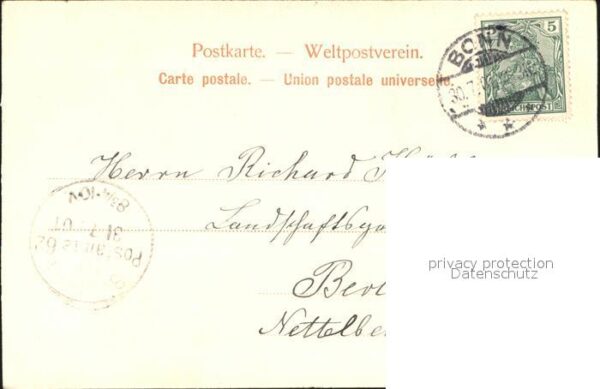 Postkarte. — Weltpostverein.
Carte postale. — Union postale universelle.
BONN
30.7.
5
REICHSPOST
Herrn Richard
Landschaftsg
Ber
Nettelbe
8¾-10V
31.7.01
privacy protection
Datenschutz